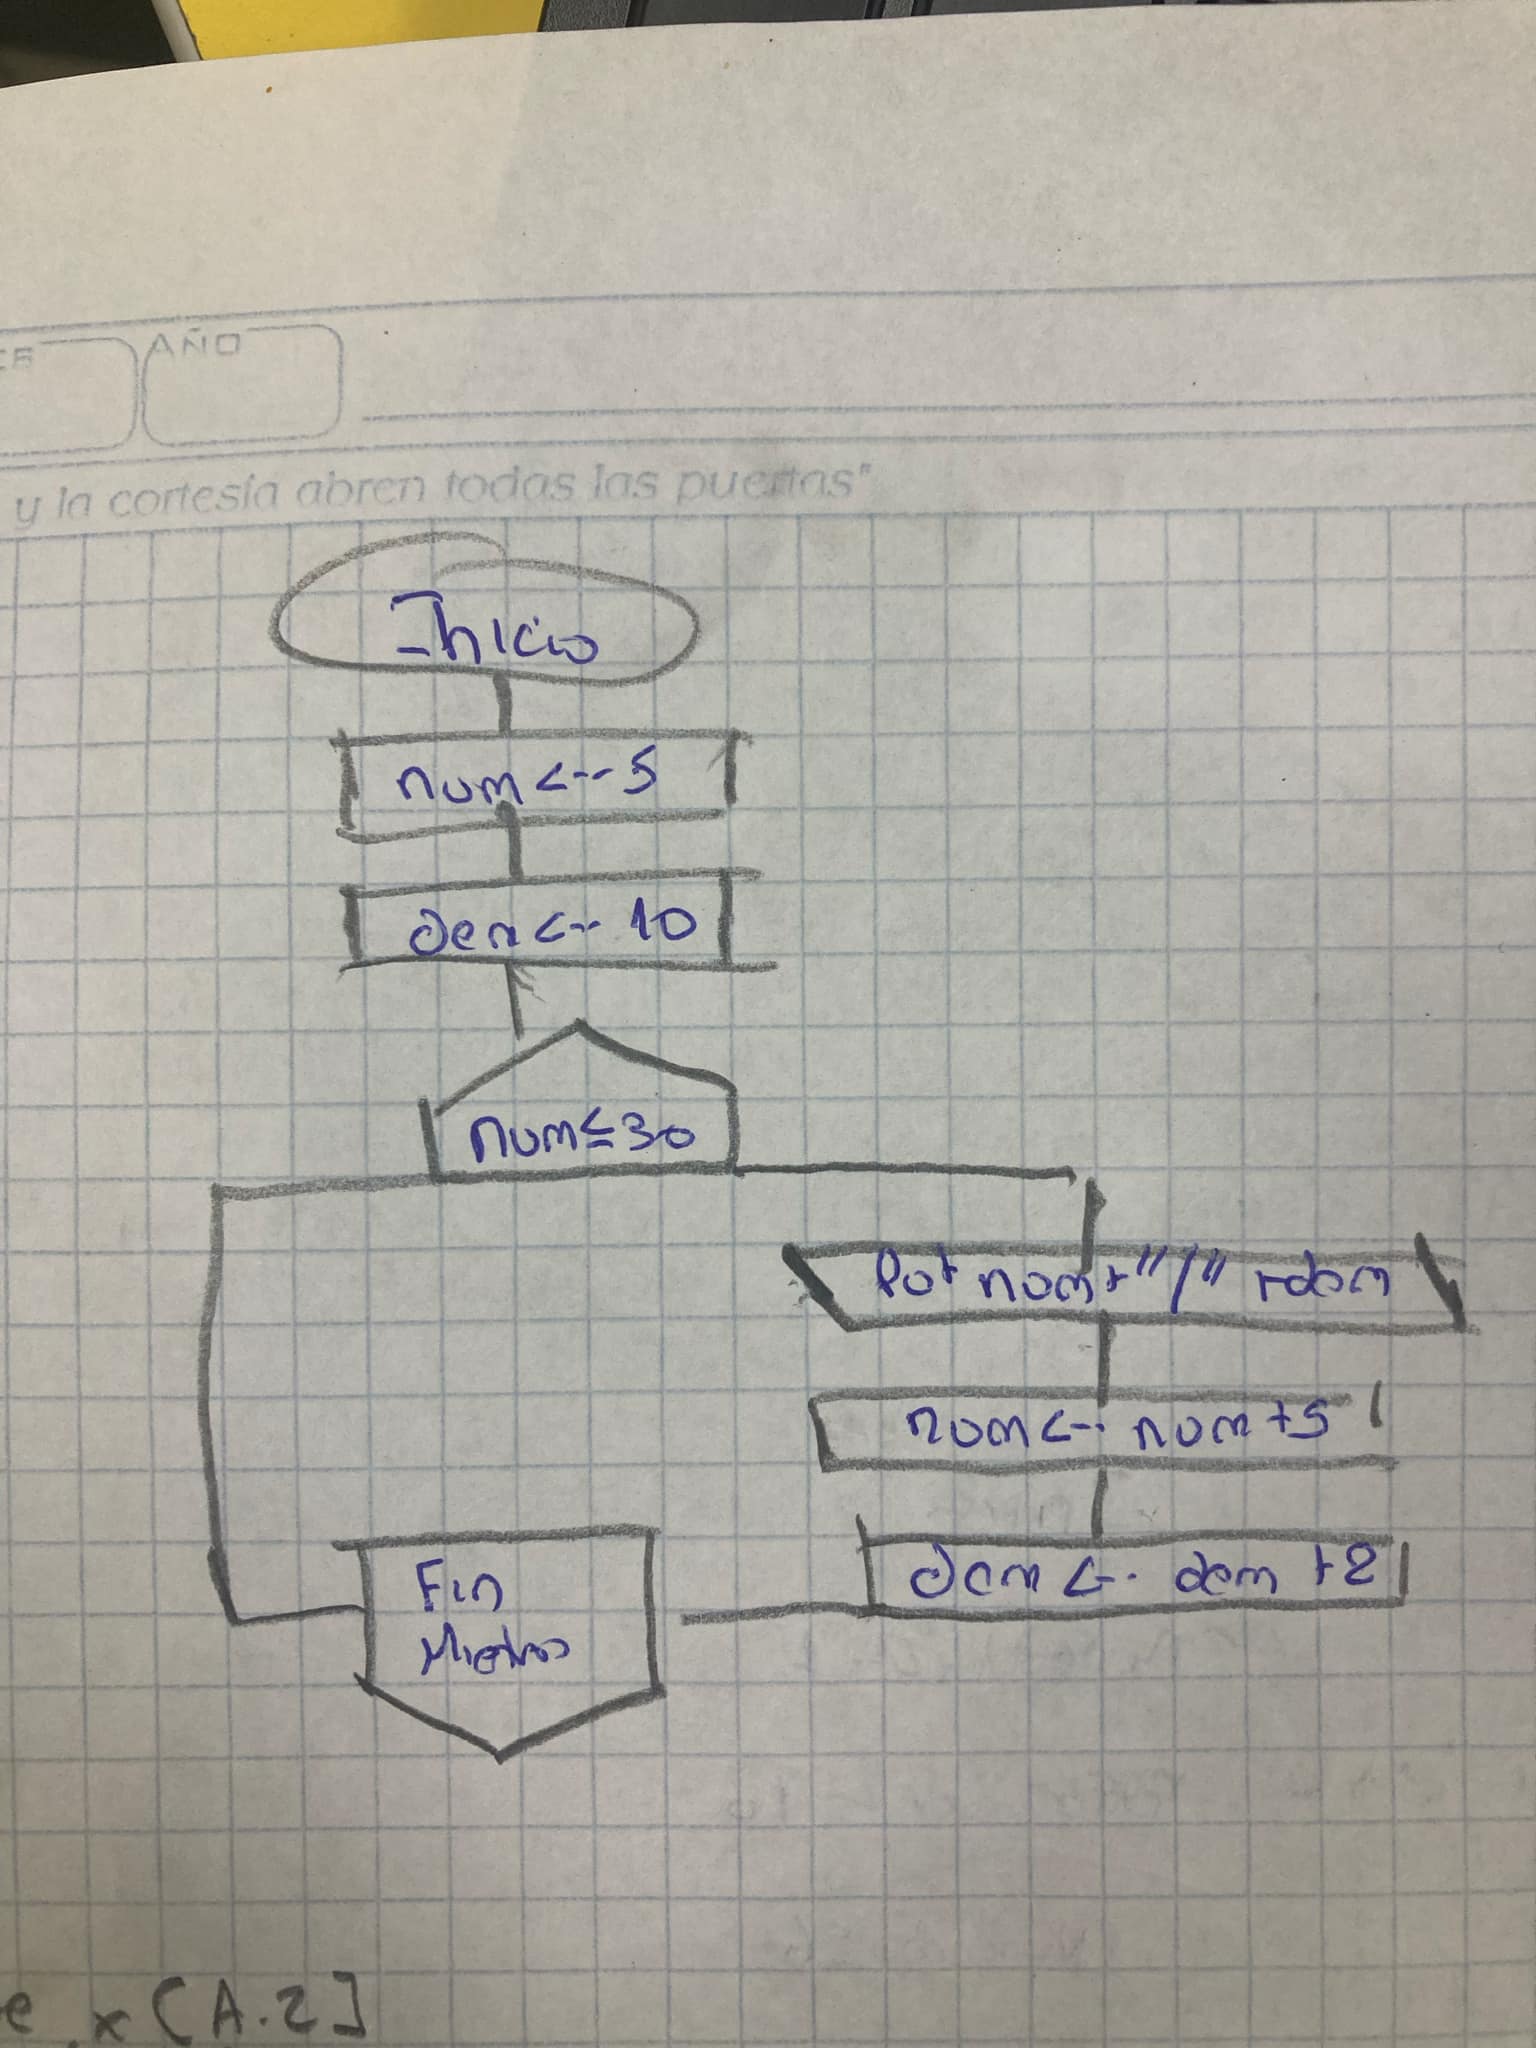 AÑO
y la cortesía abren todas las puertas"
Inicio
num <-- 5
den <-- 10
num ≤ 30
Pot num + "/" + dem
num <-- num + 5
Dem <-- dem + 2
Fin
Mientras
e x [A.2]